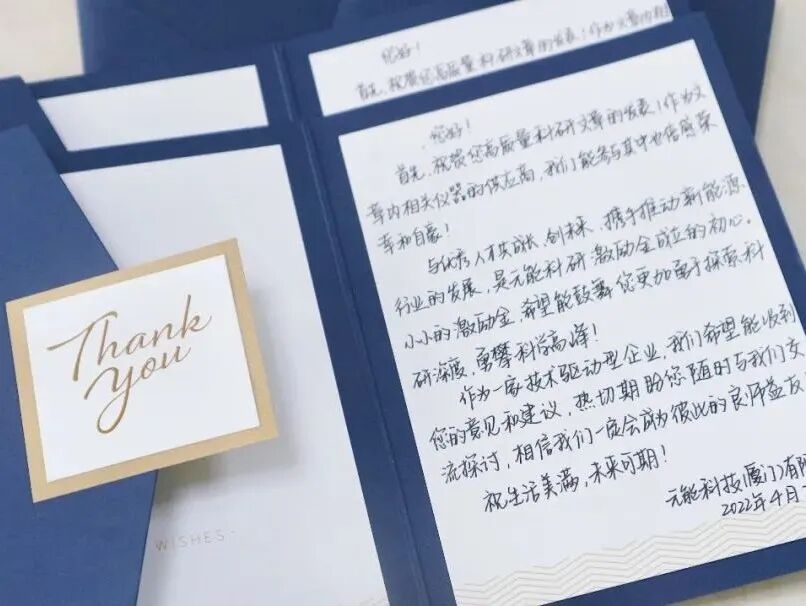 Thank
you
WISHES
您好!
首先,祝贺您高质量科研文章的发表!作为文章内相
您好!
首先,祝贺您高质量科研文章的发表!作为文
章内相关仪器的供应商,我们能参与其中也倍感荣
幸和自豪!
与优秀人才共成长、创未来,携手推动新能源
行业的发展,是元能科研激励金成立的初心。
小小的激励金,希望能鼓舞您更加勇于探索科
研深度,勇攀科学高峰!
作为一家技术驱动型企业,我们希望能收到
您的意见和建议,热切期盼您随时与我们交
流探讨,相信我们一定会成为彼此的良师益友
祝生活美满,未来可期!
元能科技(厦门)有限
2022年4月